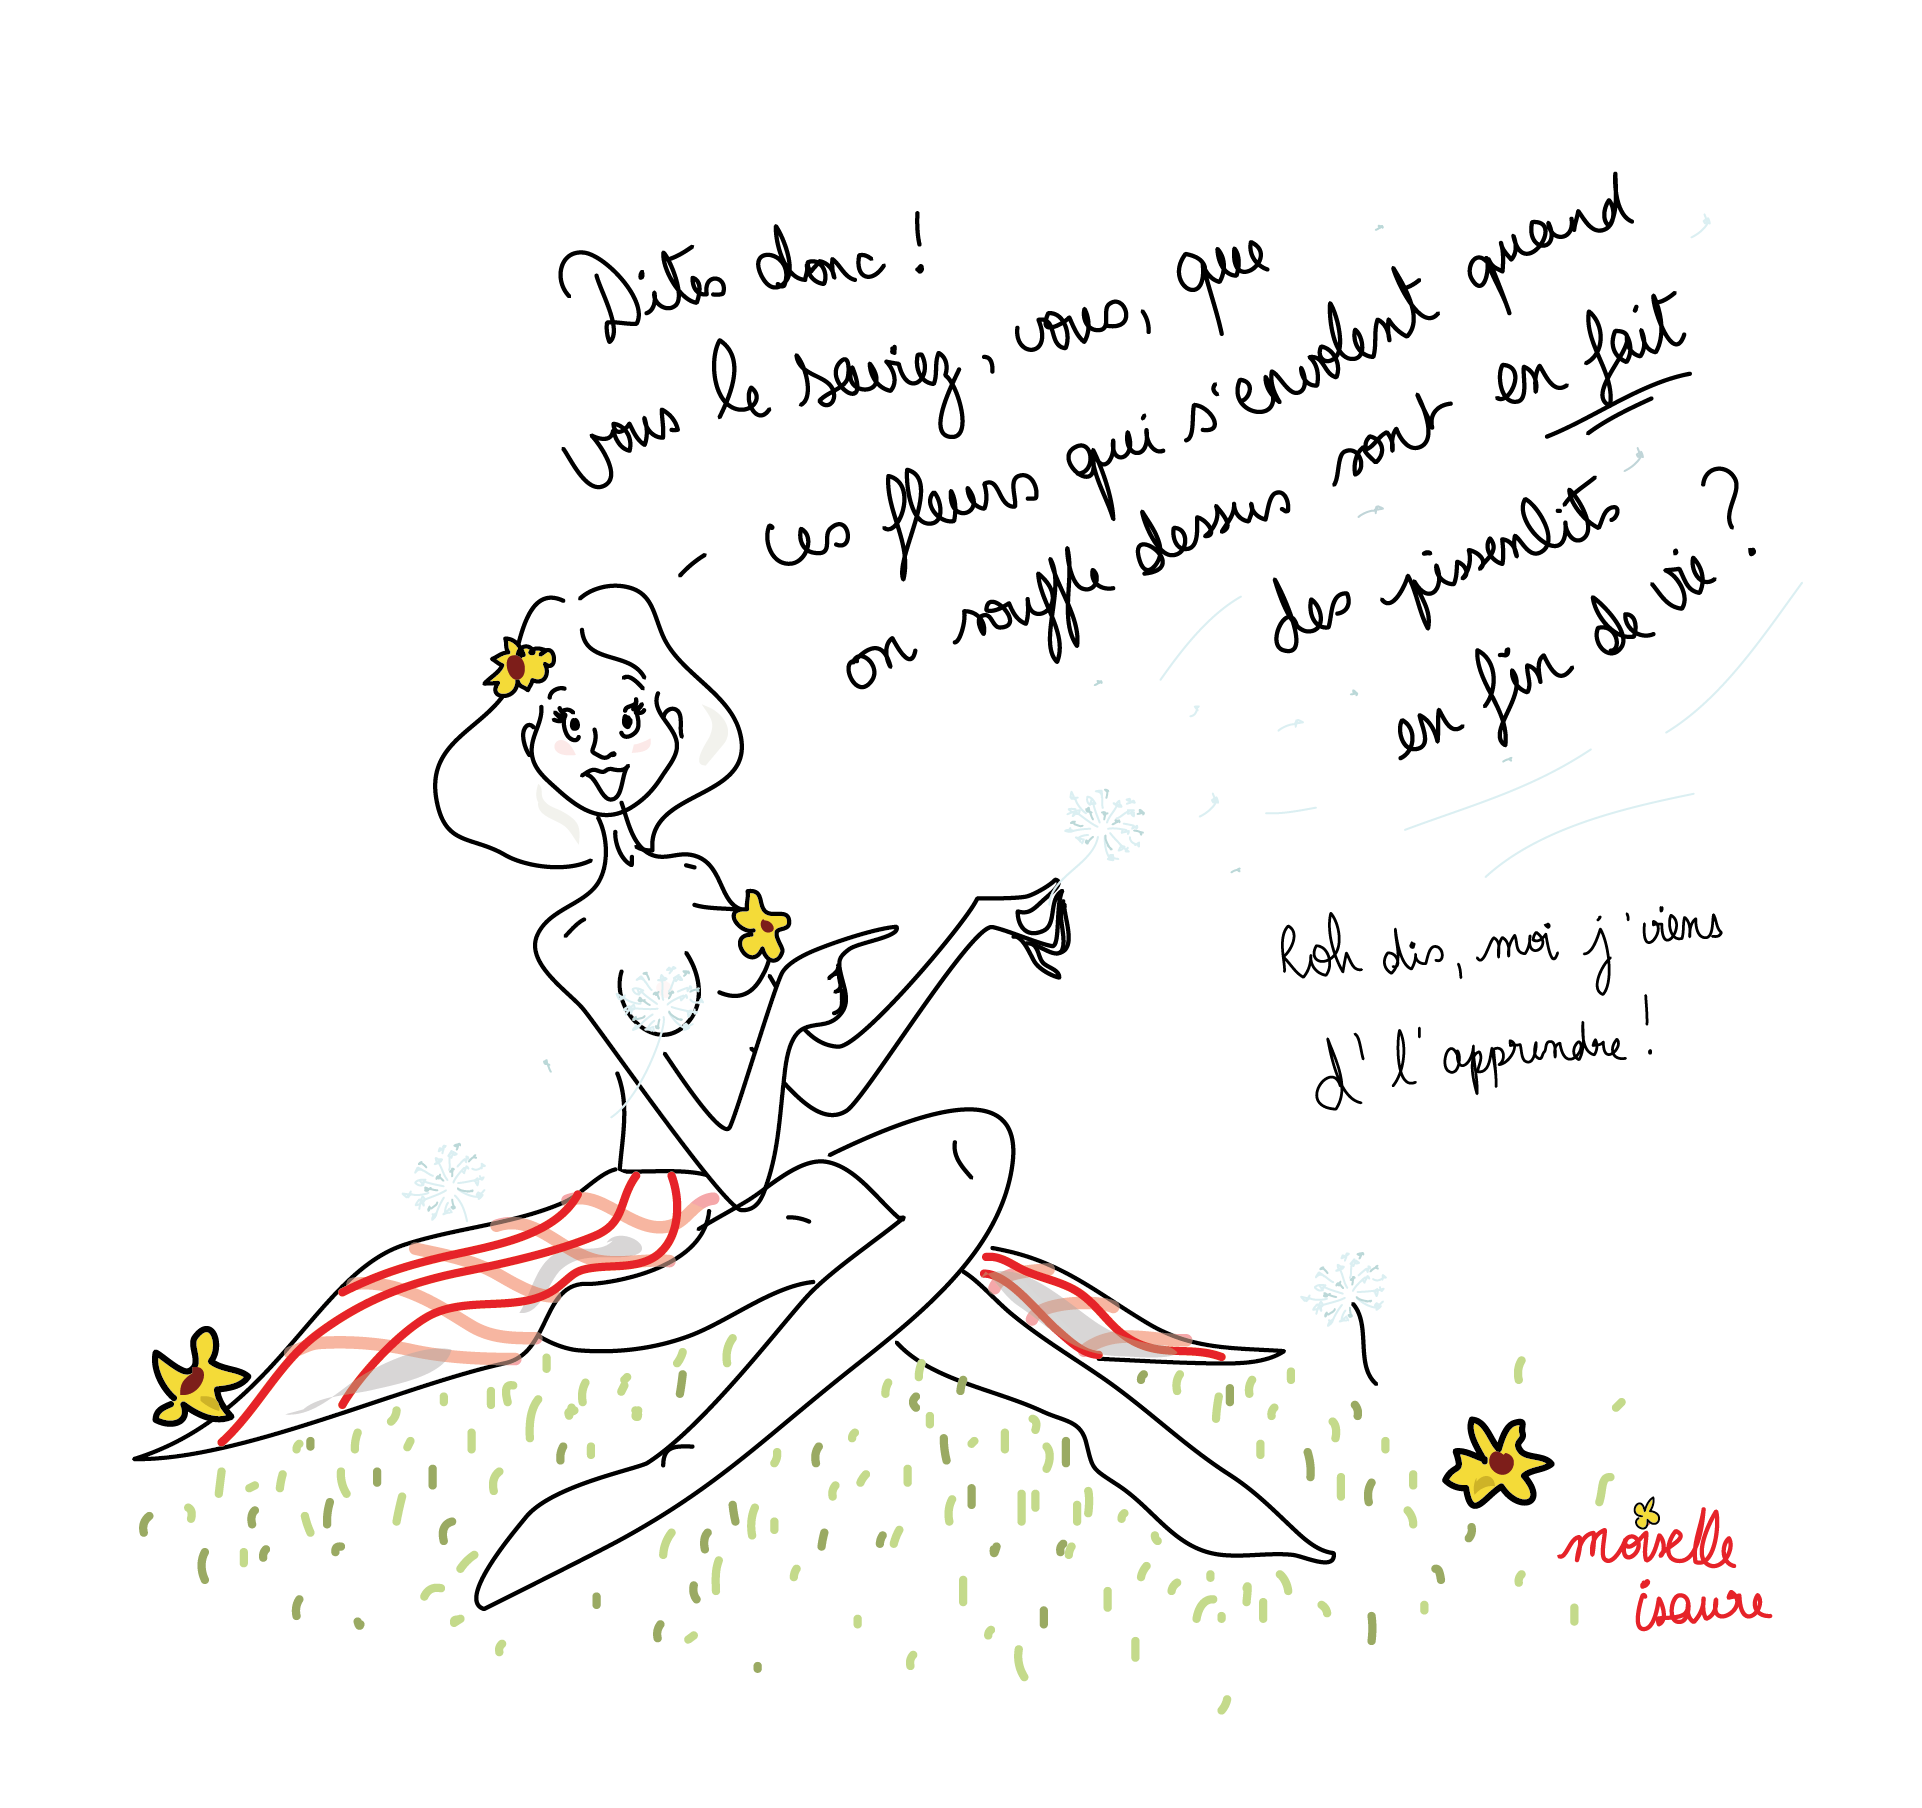 Dites donc !
vous le saviez, vous, que
ces fleurs qui s'envolent quand
on souffle dessus sont en fait
des pissenlits
en fin de vie ?
Roh dis, moi j'viens
d'l'apprendre !
moiselle
isaure